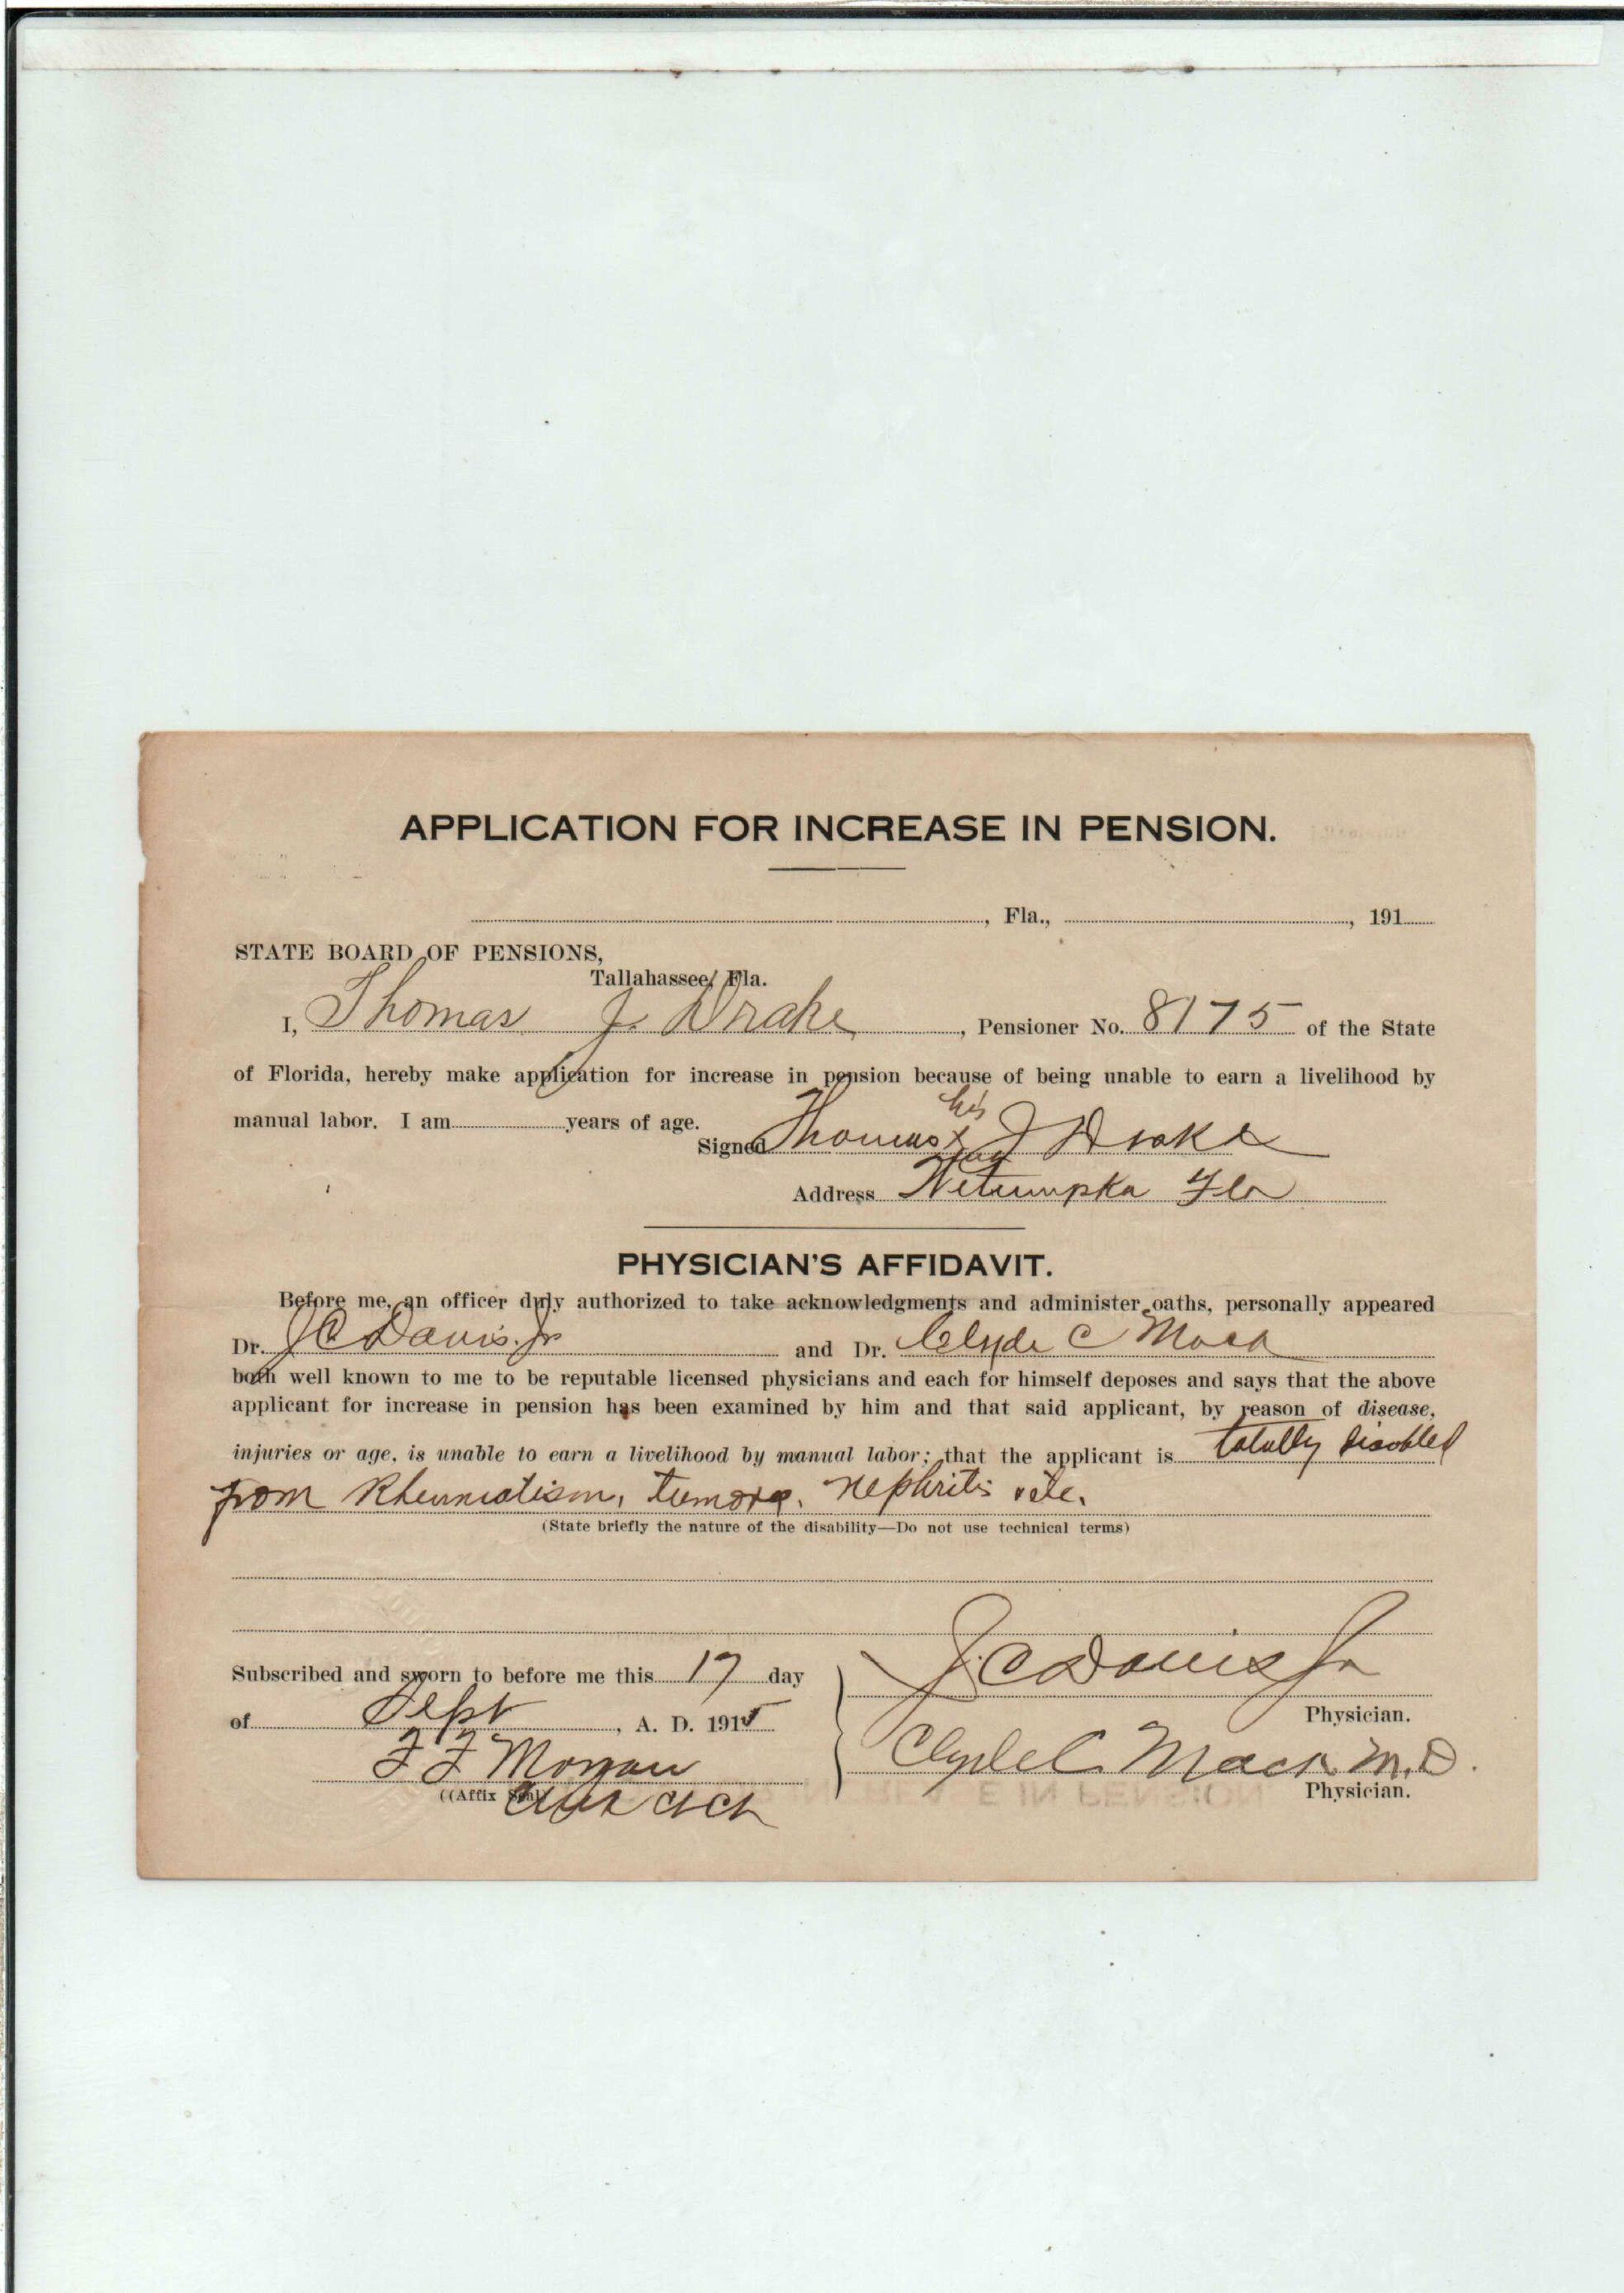 APPLICATION FOR INCREASE IN PENSION.
, Fla., , 191
STATE BOARD OF PENSIONS,
Tallahassee, Fla.
I, Thomas J. Drake, Pensioner No. 8175 of the State
of Florida, hereby make application for increase in pension because of being unable to earn a livelihood by
his
manual labor. I am years of age.
Signed Thomas x J Drake
Address Wetumpka Fla
PHYSICIAN'S AFFIDAVIT.
Before me, an officer duly authorized to take acknowledgments and administer oaths, personally appeared
Dr. J C Davis Jr and Dr. Clyde C Mack
both well known to me to be reputable licensed physicians and each for himself deposes and says that the above
applicant for increase in pension has been examined by him and that said applicant, by reason of disease,
injuries or age, is unable to earn a livelihood by manual labor; that the applicant is totally disabled
from Rheumatism, tumors, Nephritis etc.
(State briefly the nature of the disability—Do not use technical terms)
Subscribed and sworn to before me this 17 day
J. C Davis Jr
of Sept, A. D. 1915
Physician.
F F Morgan
Clyde C. Mack M.D.
((Affix Seal)
Physician.